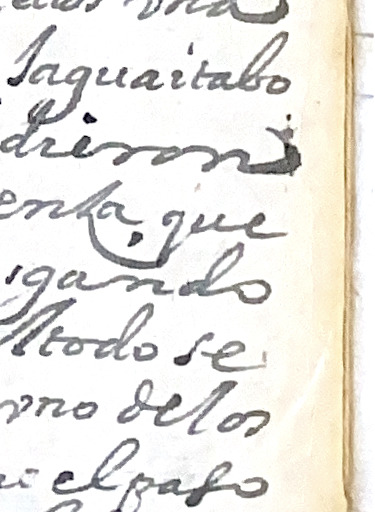 vna
Jaguaitabo
dieron
enta, que
gando
todo se
vno de los
el paso